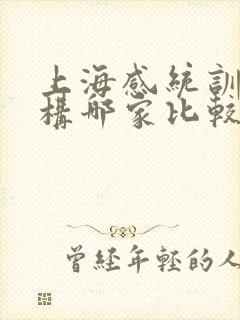 上海感統訓
構哪家比較
曾經年輕的人